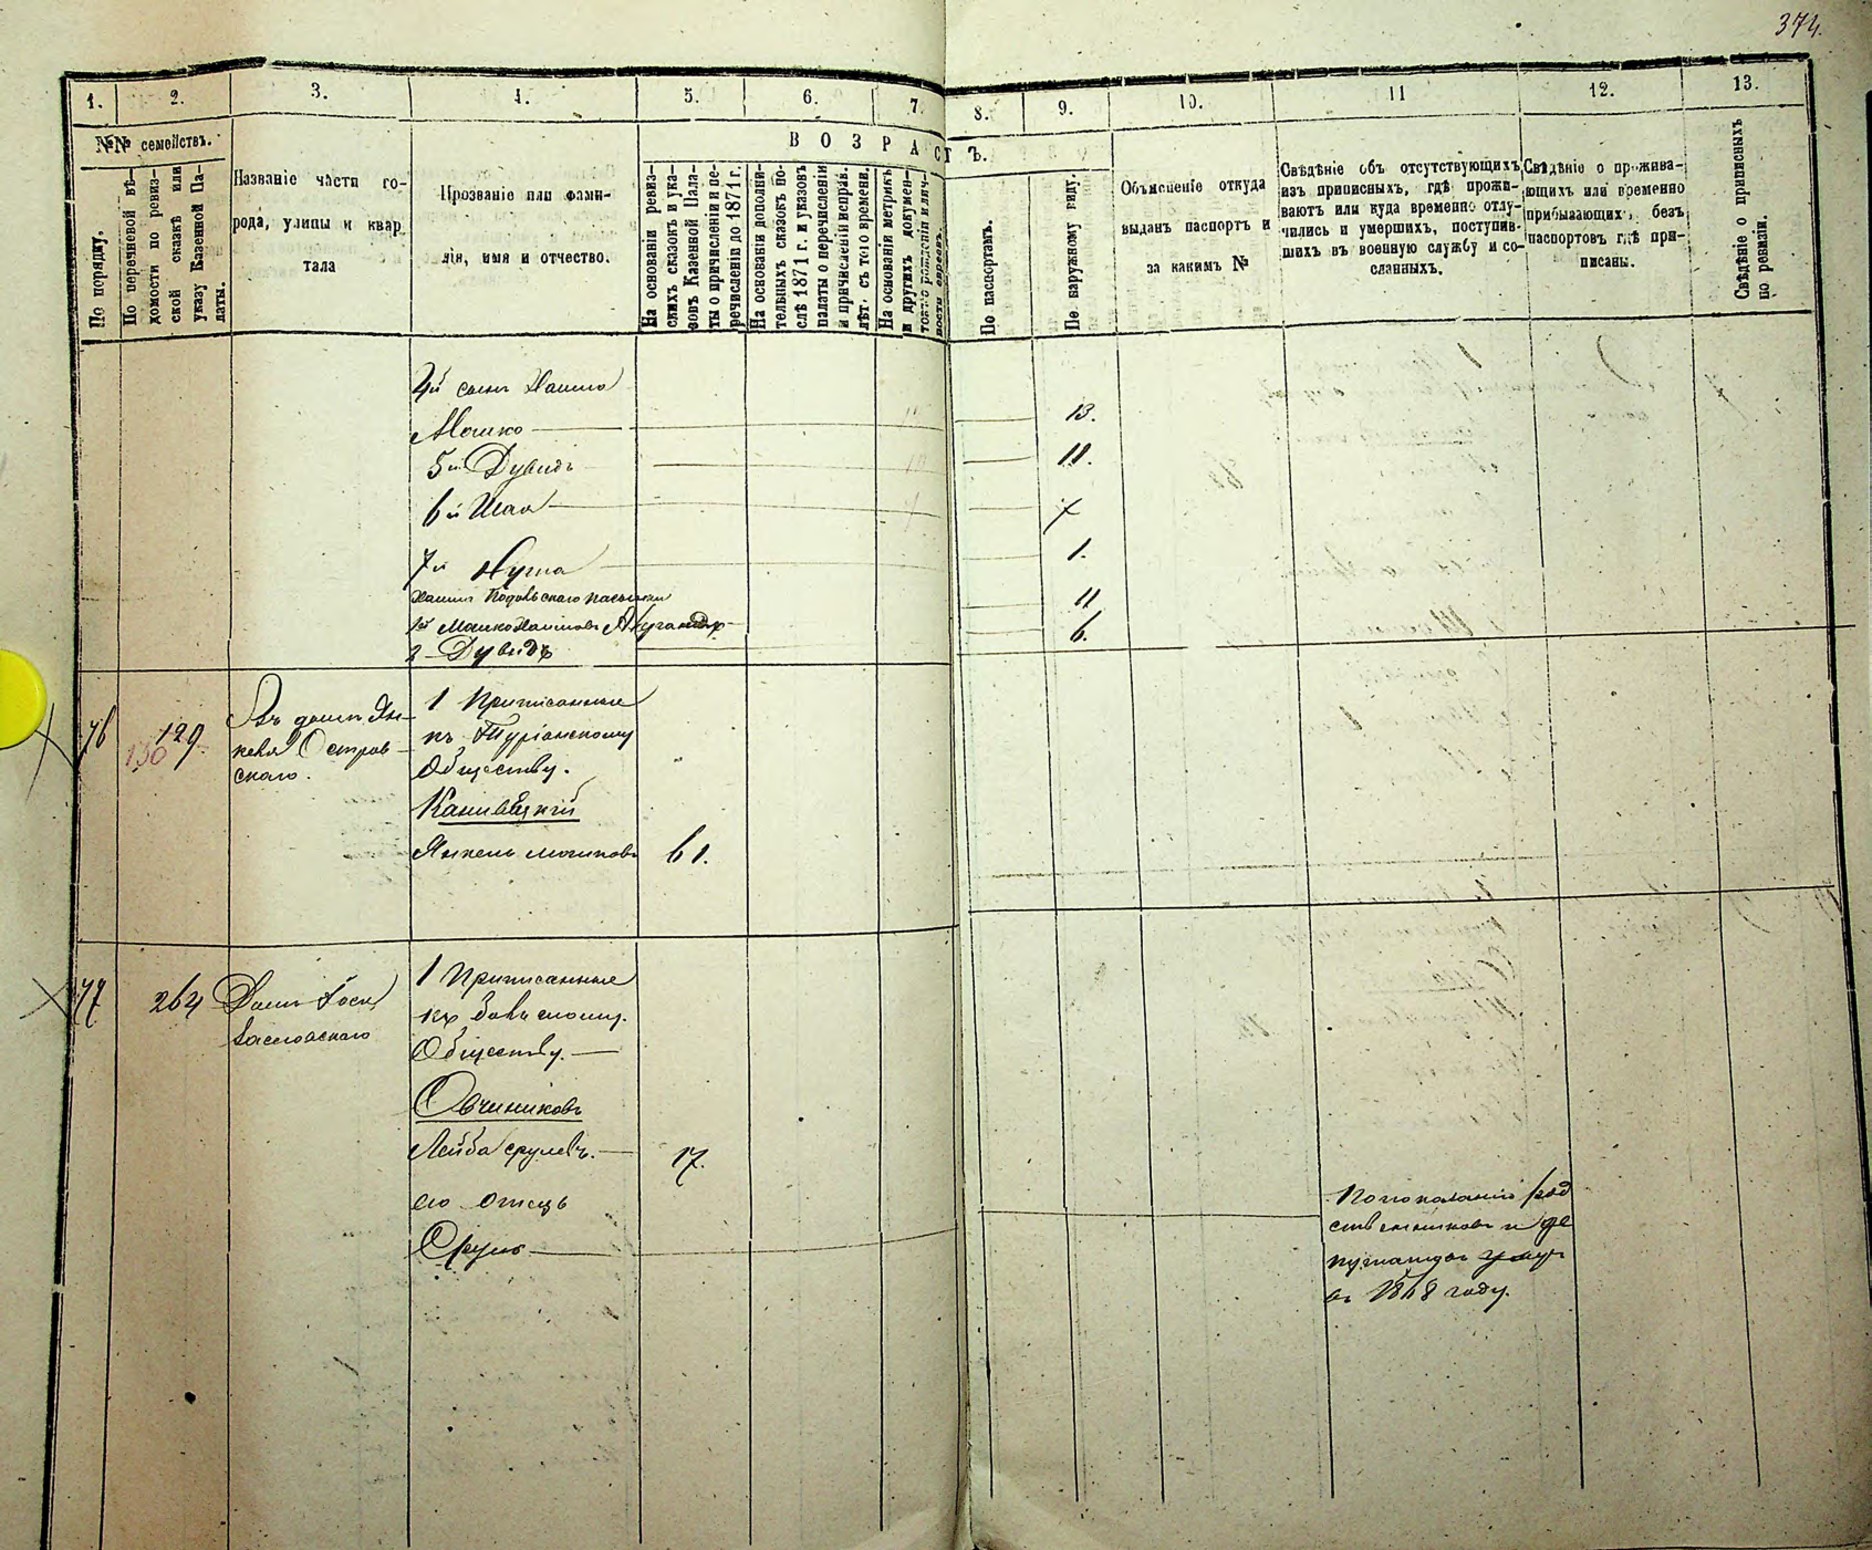 374.
1. 2. 3. 4. 5. 6. 7. 8. 9. 10. 11 12. 13.
№№ семействъ.
По порядку.
По перечневой вѣ-
домости по ревиз-
ской сказкѣ или
указу Казенной Па-
латы.
Названіе части го-
рода, улицы и квар
тала
Прозваніе или фами-
лія, имя и отчество.
ВОЗРАСТЪ.
На основаніи ревиз-
скихъ сказокъ и ука-
зовъ Казенной Пала-
ты о причисленіи и пе-
речисленіи до 1871 г.
На основаніи дополни-
тельныхъ сказокъ по-
слѣ 1871 г. и указовъ
палаты о перечисленіи
и причисленіи исправ.
лѣт. съ того времени.
На основаніи метрикъ
и другихъ докумен-
По паспортамъ.
По наружному виду.
Объясненіе откуда
выданъ паспортъ и
за какимъ №
Свѣдѣніе объ отсутствующихъ
изъ приписныхъ, гдѣ прожи-
ваютъ или куда временно отлу-
чились и умершихъ, поступив-
шихъ въ военную службу и со-
сланныхъ.
Свѣдѣніе о прожива-
ющихъ или временно
прибывающихъ, безъ
паспортовъ гдѣ при-
писаны.
Свѣдѣніе о приписныхъ
по ревизіи.
4й сынъ Хаима
Мошко 13.
5й Дувидъ 11.
6й Шая
7й Нута 1.
11
1й Мошко Хаимовъ
2 Дувидъ 6.
76 129. 130
Въ домѣ Ян-
келя Остров-
скаго.
1 Приписанные
къ Туріанскому
Обществу.
Каниввцкій
Янкель Мошковъ 61.
77 264 Домъ
1 Приписанные
къ
Обществу.
Овчиниковъ
Лейба Срулевъ. 17.
его отецъ
Сруль
По показанію род
ственниковъ и де
путатовъ умеръ
въ 1868 году.